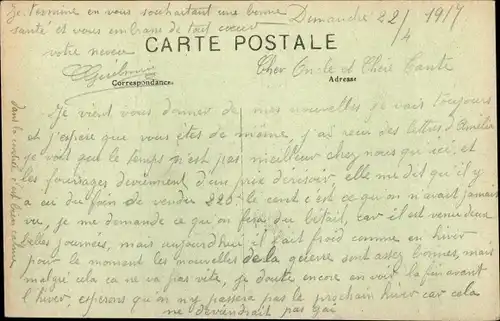 Je termine en vous souhaitant une bonne
santé et vous embrasse de tout coeur
votre neveu
Dimanche 22/4 1917
CARTE POSTALE
Correspondance
Adresse
Cher Oncle et Chère Tante
Je vient vous donner de mes nouvelles je vais toujours
et j'espère que vous êtes de même, j'ai reçu des lettres d'Amélie
je voit que le temps n'est pas meilleur chez nous qu'ici, et
les fourrages deviennent d'un prix dérisoir, elle me dit qu'il y
a eu du foin de vendu 220 le cent c'est ce qu'on n'avait jamais
vu, je me demande ce qu'on fera du bétail, car il est venu deux
belles journées, mais aujourd'hui il fait froid comme en hiver
pour le moment les nouvelles de la guerre sont assez bonnes, mais
malgré cela ça ne va pas vite, je doute encore en voir la fin avant
l'hiver, esperons qu'on n'y passera pas le prochain hiver car cela
ne deviendrait pas gai